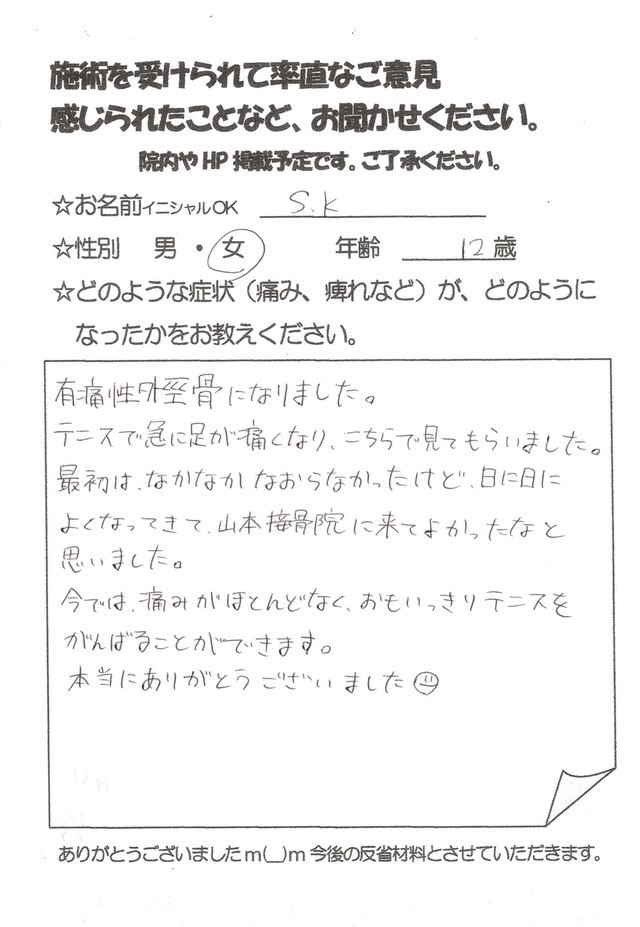 施術を受けられて率直なご意見
感じられたことなど、お聞かせください。
院内やHP掲載予定です。ご了承ください。
☆お名前イニシャルOK S.K
☆性別 男・女 年齢 12歳
☆どのような症状（痛み、痺れなど）が、どのように
なったかをお教えください。
有痛性外脛骨になりました。
テニスで急に足が痛くなり、こちらで見てもらいました。
最初は、なかなかなおらなかったけど、日に日に
よくなってきて、山本接骨院に来てよかったなと
思いました。
今では、痛みがほとんどなく、おもいっきりテニスを
がんばることができます。
本当にありがとうございました☺
ありがとうございましたm(__)m今後の反省材料とさせていただきます。